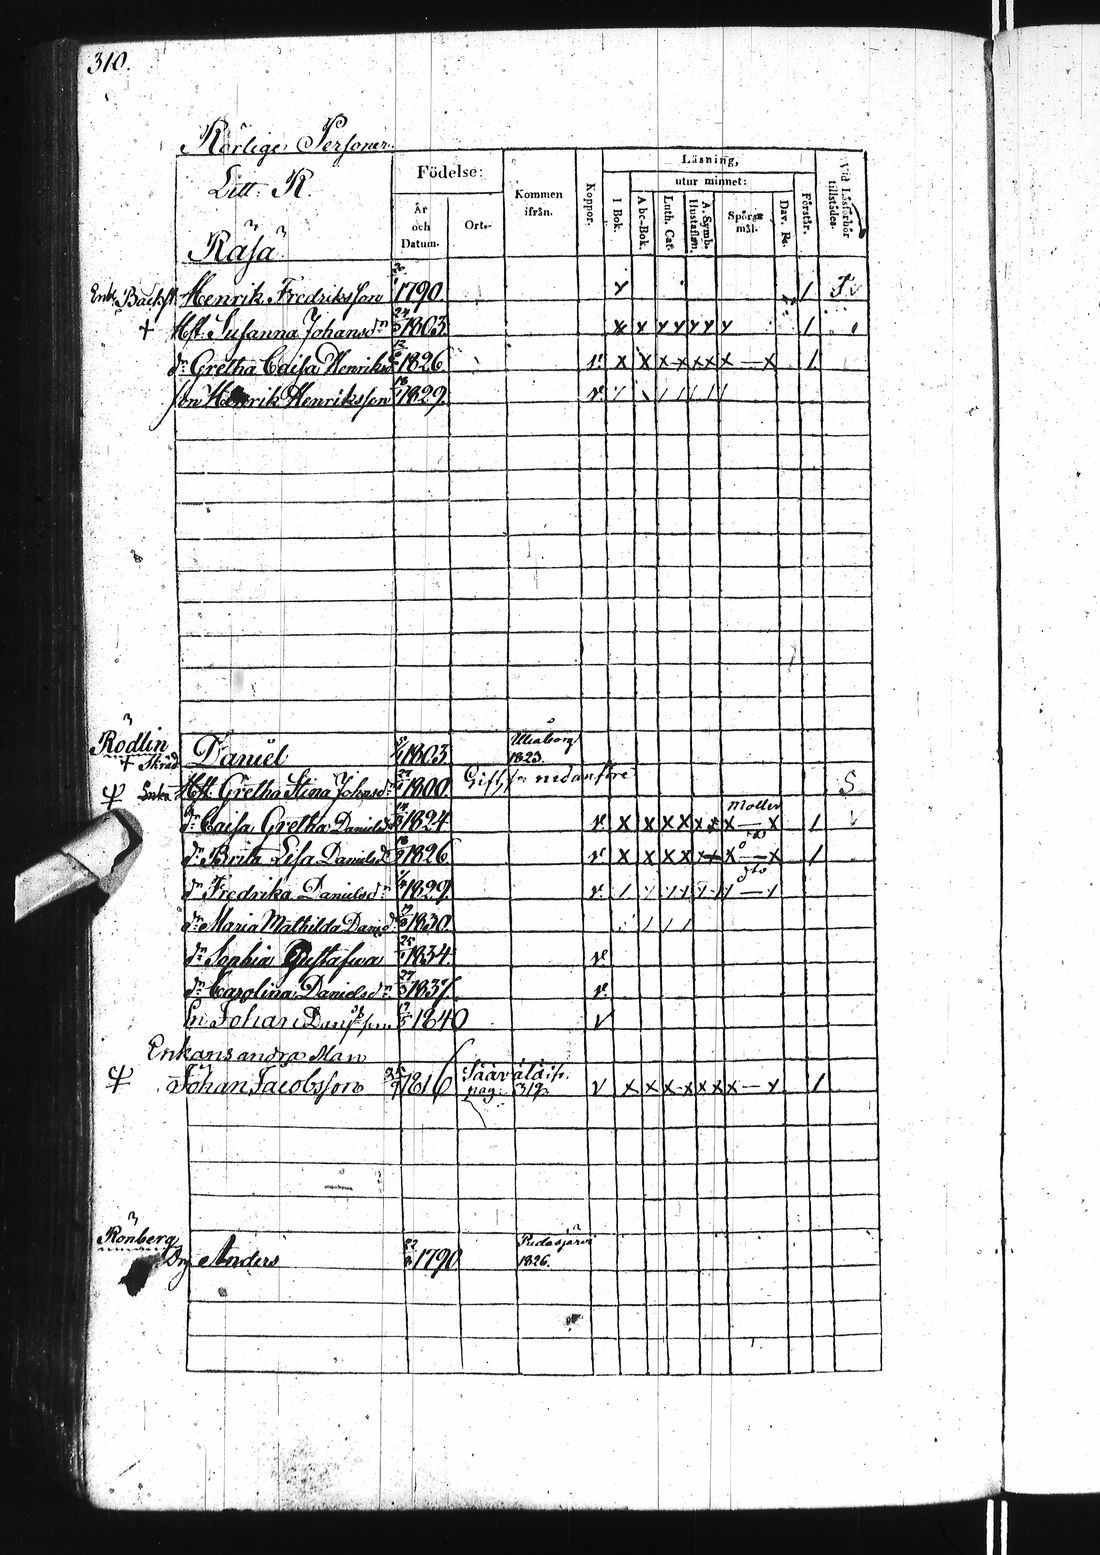 310.
Rörlige Personer
Litt. R.
Födelse:
År och Datum.
Ort.
Kommen ifrån.
Koppor.
Läsning,
utur minnet:
I Bok.
Abc-Bok.
Luth. Cat.
A. Symb. Hustaflan.
Spörsmål.
Dav. Ps.
Förstår.
Vid Läsförhör tillstädes.
Rasa
Henrik Fredriksson 1790
+ Hst. Susanna Johansdr 1803
dr Gretha Caisa Henriksd 1826 v. x x x x x x x — x 1.
son Henrik Henriksson 1829 v.
Rödlin
+ Skräd Daniel 1803 Uleåborg 1823.
Enka Hst. Gretha Stina Johnsdr 1800 Gift se nedanföre S
dr Caisa Gretha Danielsd 1824 v. x x x x x x x — x 1
dr Brita Lisa Danielsd 1826 v x x x x x x x — x 1
dr Fredrika Danielsdr 1829 v.
dr Maria Mathilda Danisdr 1830
dr Sophia Gustafva 1834 v
dr Carolina Danielsdr 1837 v.
Sn Johan 1840 v
Enkans andra Man
Johan Jacobsson 1816 pag. 312. v x x x x x x x — x 1
Rönberg
Drg Anders 22 1790 Pudasjärvi 1826.